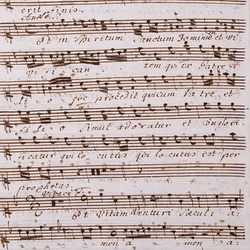 erit finis.
Et in Spiritum Sanctum Dominum et vi-
vifi can tem qui ex Patre et
fi li o que procedit qui cum Patre, et
fi li o Simul adoratur et conglori
ficatur qui lo cutus qui locutus est per
prophetas.
et Vitam Venturi Saeculi a
men a men a